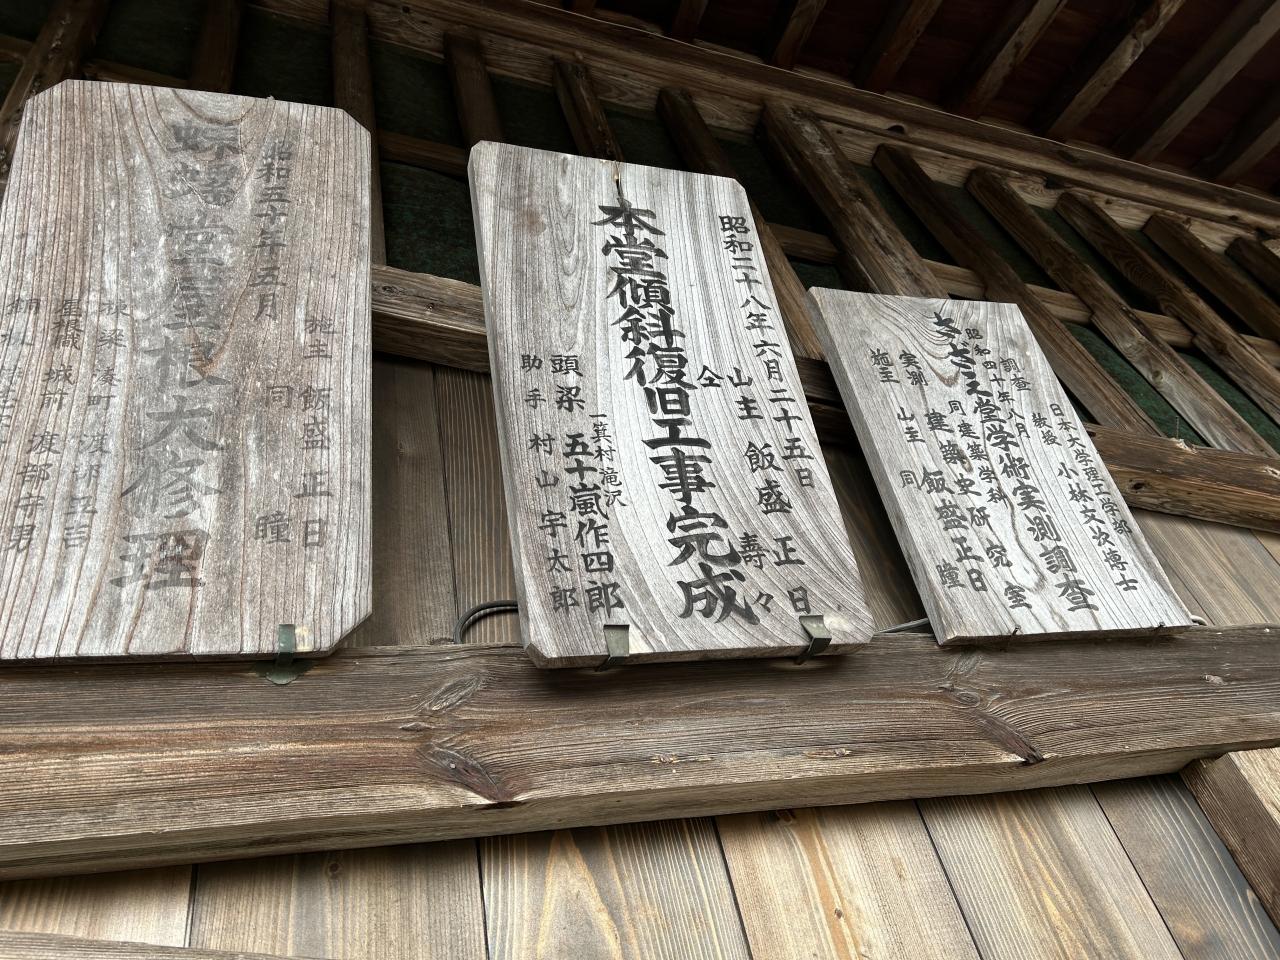 日本大学理工学部
教授 小林文次博士
調査
昭和四十年八月
さざえ堂学術実測調査
同建築学科
建築史研究室
実測
施主
山主 飯盛正日
同 瞳
昭和二十八年六月二十五日
山主 飯盛正日
仝 壽々
本堂傾斜復旧工事完成
一箕村滝沢
頭梁 五十嵐作四郎
助手 村山宇太郎
施主 飯盛正日
同 瞳
昭和五十年五月
蠑螺堂屋根大修理
棟梁 湊町 渡部
屋根職 城前 渡部